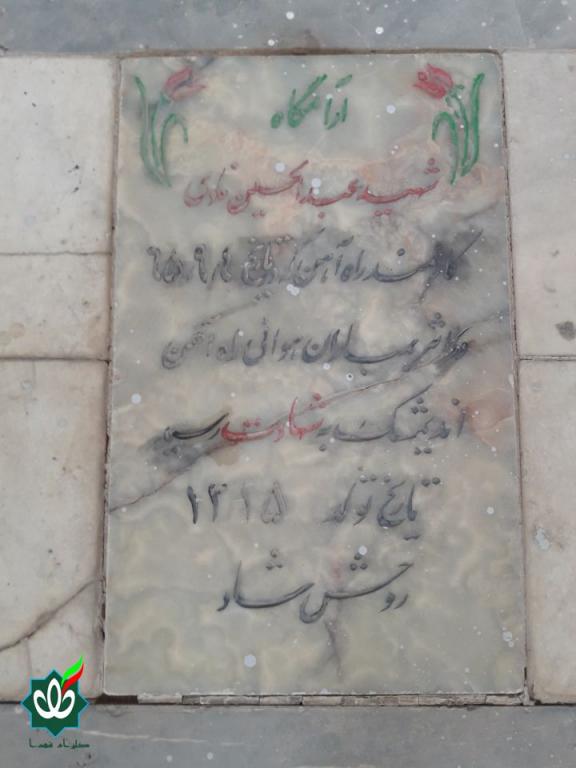 آرامگاه
شهید عبدالحسین
کارمند راه آهن که در تاریخ ۶۵/۹/۴
در اثر بمباران هوائی راه آهن
اندیمشک به شهادت رسید
تاریخ تولد ۱۳۱۵
روحش شاد